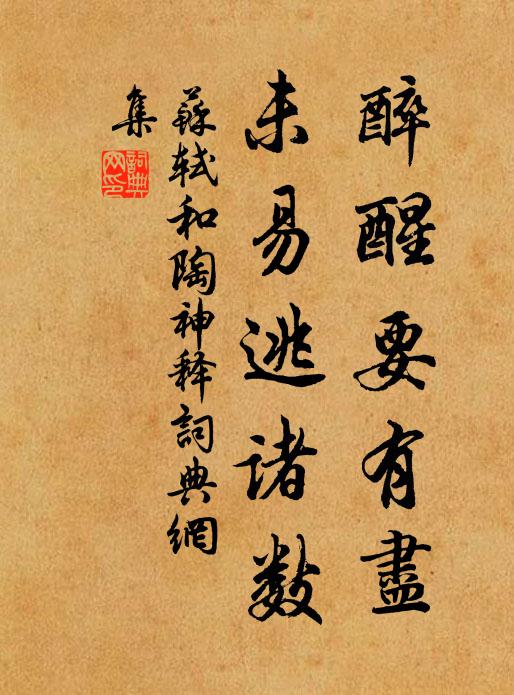 醉醒要有盡
未易逃諸數
蘇軾和陶神释詞典網
集
詞典網印